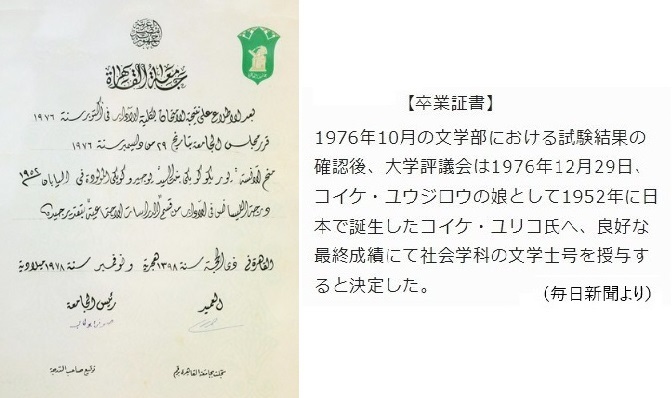 جامعة القاهرة
بعد الاطلاع على نتيجة الامتحان لكلية الآداب فى أكتوبر سنة ١٩٧٦
قرر مجلس الجامعة بتاريخ ٢٩ من ديسمبر سنة ١٩٧٦
منح الآنسة يوريكو كويكى يوجيرو كويكى المولودة فى اليابان ١٩٥٢
درجة الليسانس فى الآداب من قسم الدراسات الاجتماعية بتقدير جيد
القاهرة فى ذى الحجة سنة ١٣٩٨ هجرية ونوفمبر سنة ١٩٧٨ ميلادية
العميد
رئيس الجامعة
سجلت بجامعة القاهرة برقم
توقيع صاحب الشهادة
【卒業証書】
1976年10月の文学部における試験結果の
確認後、大学評議会は1976年12月29日、
コイケ・ユウジロウの娘として1952年に日
本で誕生したコイケ・ユリコ氏へ、良好な
最終成績にて社会学科の文学士号を授与す
ると決定した。
(毎日新聞より)